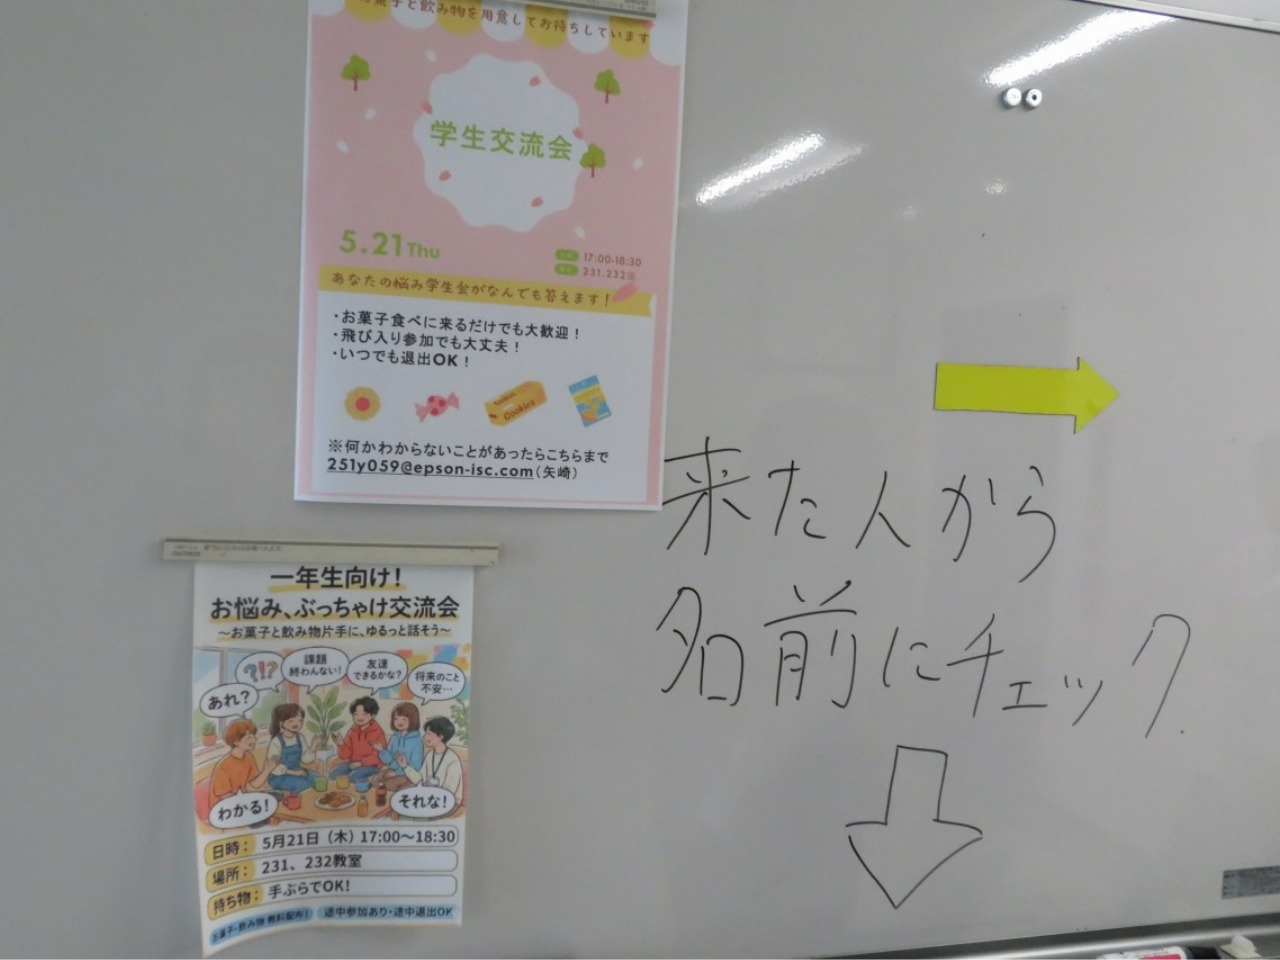 お菓子と飲み物を用意してお待ちしています
学生交流会
5.21 Thu
17:00-18:30
231.232
あなたの悩み学生会がなんでも答えます!
・お菓子食べに来るだけでも大歓迎!
・飛び入り参加でも大丈夫!
・いつでも退出OK!
Cookies
※何かわからないことがあったらこちらまで
251y059@epson-isc.com(矢崎)
来た人から
名前にチェック
一年生向け!
お悩み、ぶっちゃけ交流会
~お菓子と飲み物片手に、ゆるっと話そう~
?!?
課題
終わんない!
友達
できるかな?
将来のこと
不安…
あれ?
わかる!
それな!
日時: 5月21日(木)17:00~18:30
場所: 231、232教室
持ち物: 手ぶらでOK!
お菓子・飲み物 無料配布!
途中参加あり・途中退出OK